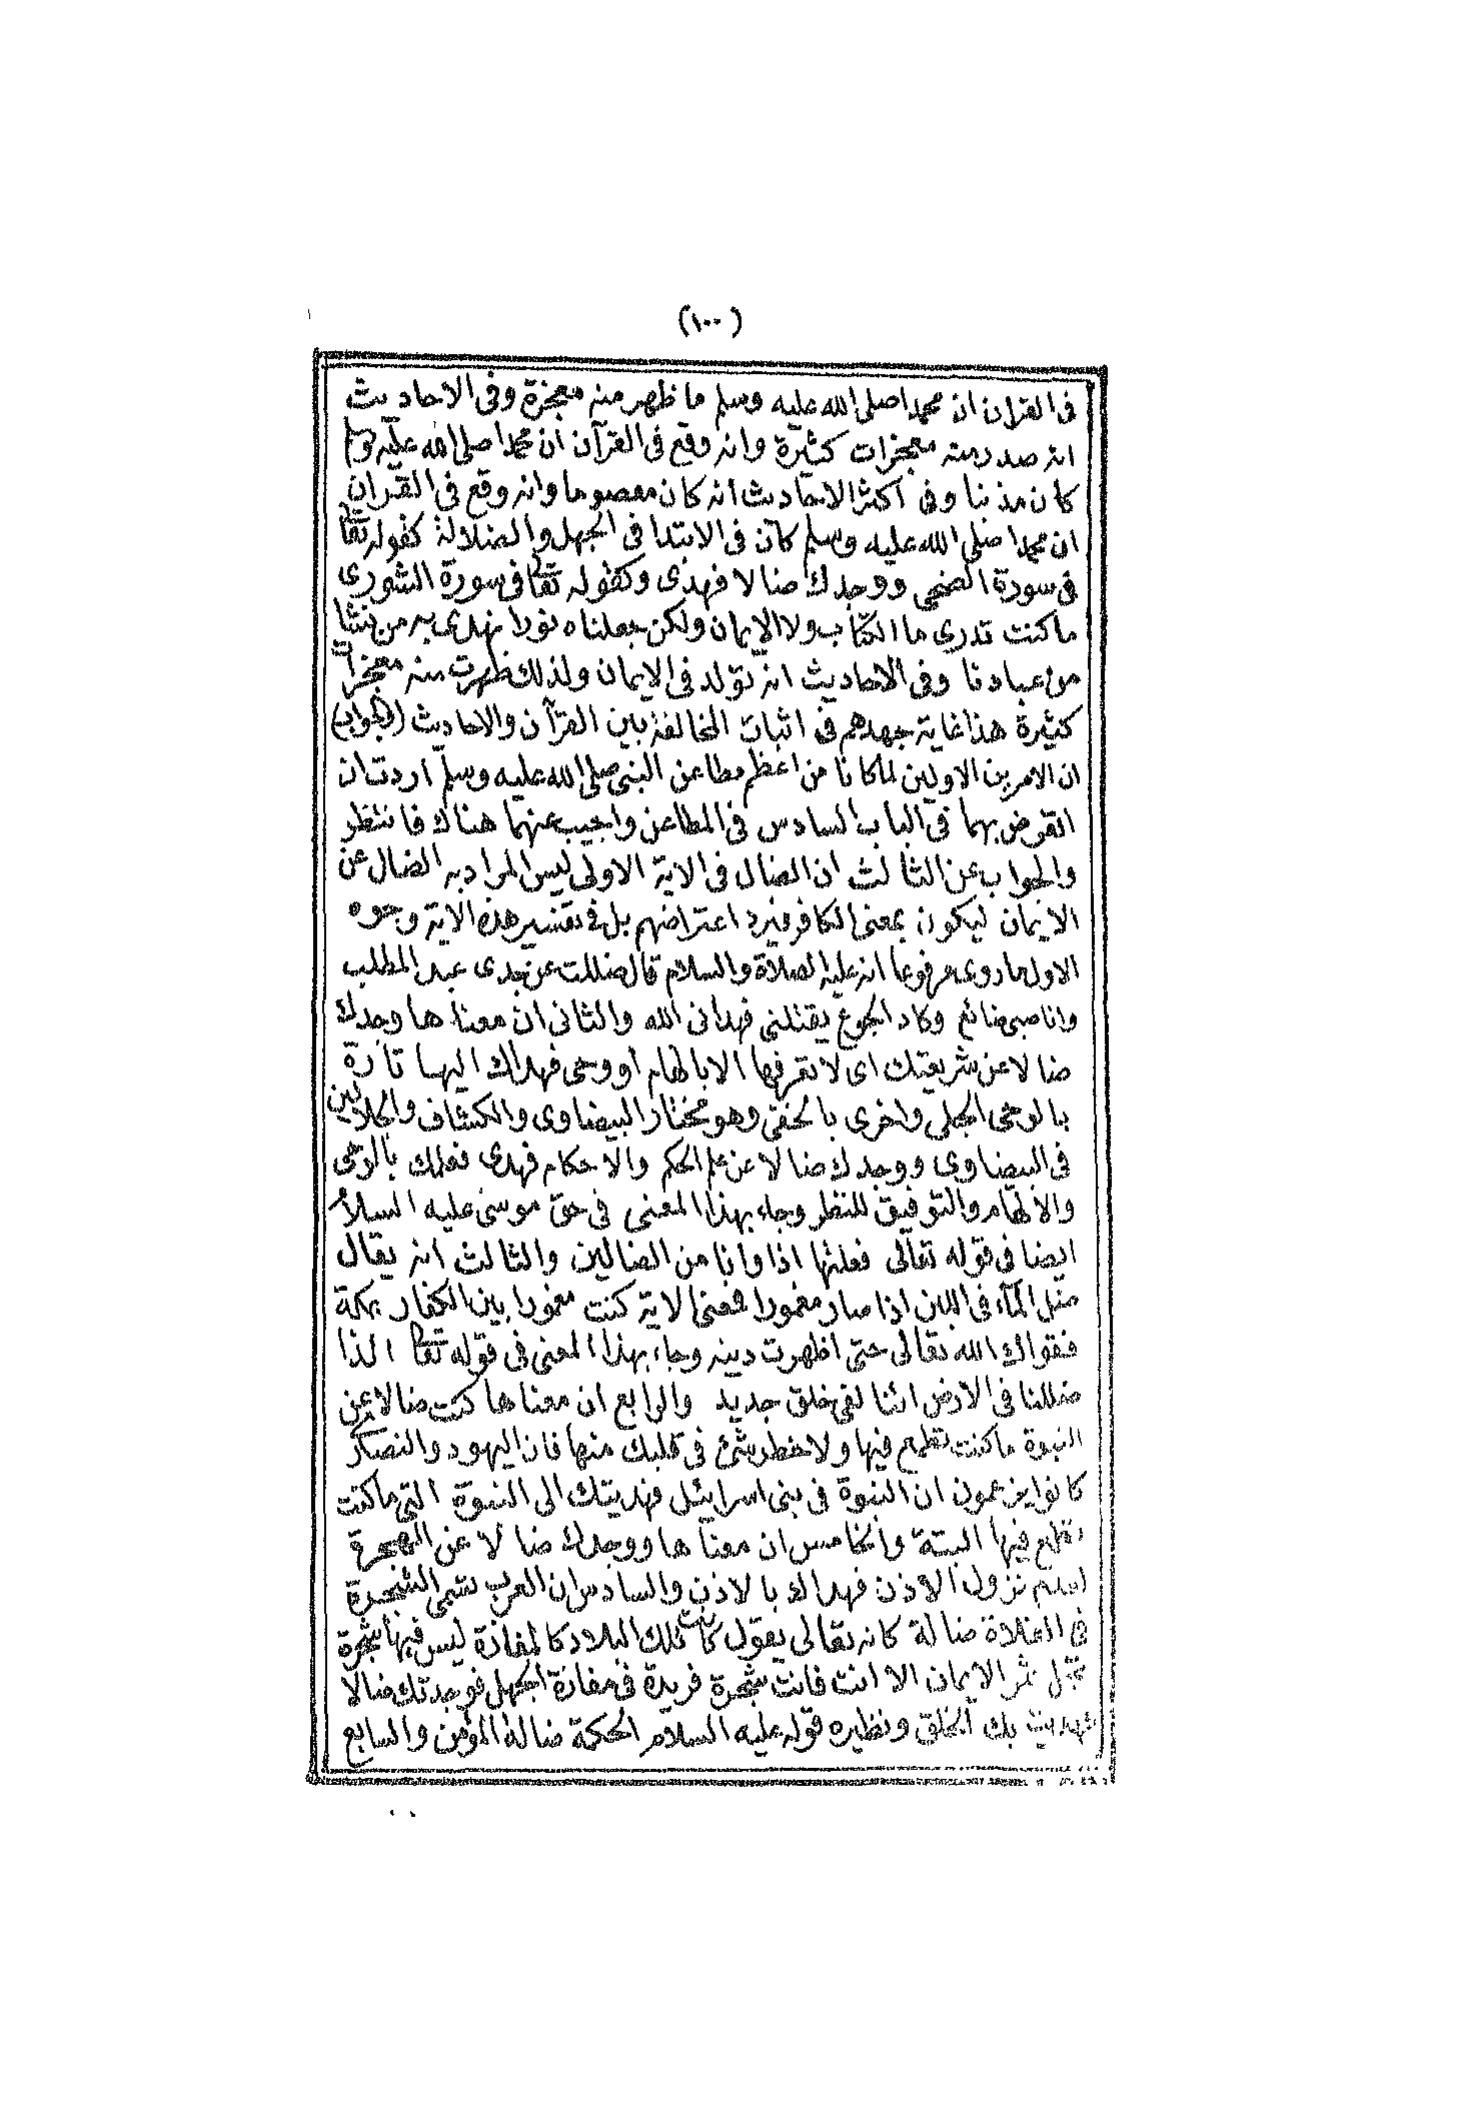 (١٠٠)
فى القران ان محمدا صلى الله عليه وسلم ما ظهر منه معجزة وفى الاحاديث
انه صدر منه معجزات كثيرة وانه وقع فى القرآن ان محمدا صلى الله عليه وسلم
كان مذنبا وفى اكثر الاحاديث انه كان معصوما وانه وقع فى القران
ان محمدا صلى الله عليه وسلم كان فى الابتدا فى الجهل والضلالة كقوله تعا
فى سورة الضحى ووجدك ضالا فهدى وكقوله تعا فى سورة الشورى
ما كنت تدرى ما الكتاب ولا الايمان ولكن جعلناه نورا نهدى به من نشا
من عبادنا وفى الاحاديث انه تولد فى الايمان ولذلك ظهرت منه معجزات
كثيرة هذا غاية جهدهم فى اثبات المخالفة بين القرآن والاحاديث (الجواب)
ان الامرين الاولين لما كانا من اعظم مطاعن النبى صلى الله عليه وسلم اردت ان
اتعرض بهما فى الباب السادس فى المطاعن واجيب عنهما هناك فانتظر
والجواب عن الثالث ان الضال فى الاية الاولى ليس المراد به الضال عن
الايمان ليكون بمعنى الكافر فيرد اعتراضهم بل فى تفسير هذه الاية وجوه
الاول ما روى مرفوعا انه عليه الصلاة والسلام قال ضللت عن جدى عبد المطلب
وانا صبى ضائع وكاد الجوع يقتلنى فهدانى الله والثانى ان معناها وجدك
ضالا عن شريعتك اى لا تعرفها الا بالهام او وحى فهداك اليها تارة
بالوحى الجلى واخرى بالخفى وهو مختار البيضاوى والكشاف والجلالين
فى البيضاوى ووجدك ضالا عن علم الحكم والاحكام فهدى فعلمك بالوحى
والالهام والتوفيق للنظر وجاء بهذا المعنى فى حق موسى عليه السلام
ايضا فى قوله تعالى فعلتها اذا وانا من الضالين والثالث انه يقال
ضل الماء فى اللبن اذا صار مغمورا فمعنى الاية كنت مغمورا بين الكفار بمكة
فقواك الله تعالى حتى اظهرت دينه وجاء بهذا المعنى فى قوله تعا ائذا
ضللنا فى الارض ائنا لفى خلق جديد والرابع ان معناها كنت ضالا عن
النبوة ما كنت تطمع فيها ولا خطر شئ فى قلبك منها فان اليهود والنصارى
كانوا يزعمون ان النبوة فى بنى اسرائيل فهديتك الى النبوة التى ما كنت
تطمع فيها البتة والخامس ان معناها ووجدك ضالا عن الهجرة
لعدم نزول الاذن فهداك بالاذن والسادس ان العرب تسمى الشجرة
فى الفلاة ضالة كانه تعالى يقول كانت تلك البلاد كالمفازة ليس فيها شجرة
تحمل ثمر الايمان الا انت فانت شجرة فريدة فى مفازة الجهل فوجدتك ضالا
فهديت بك الخلق ونظيره قوله عليه السلام الحكمة ضالة المؤمن والسابع